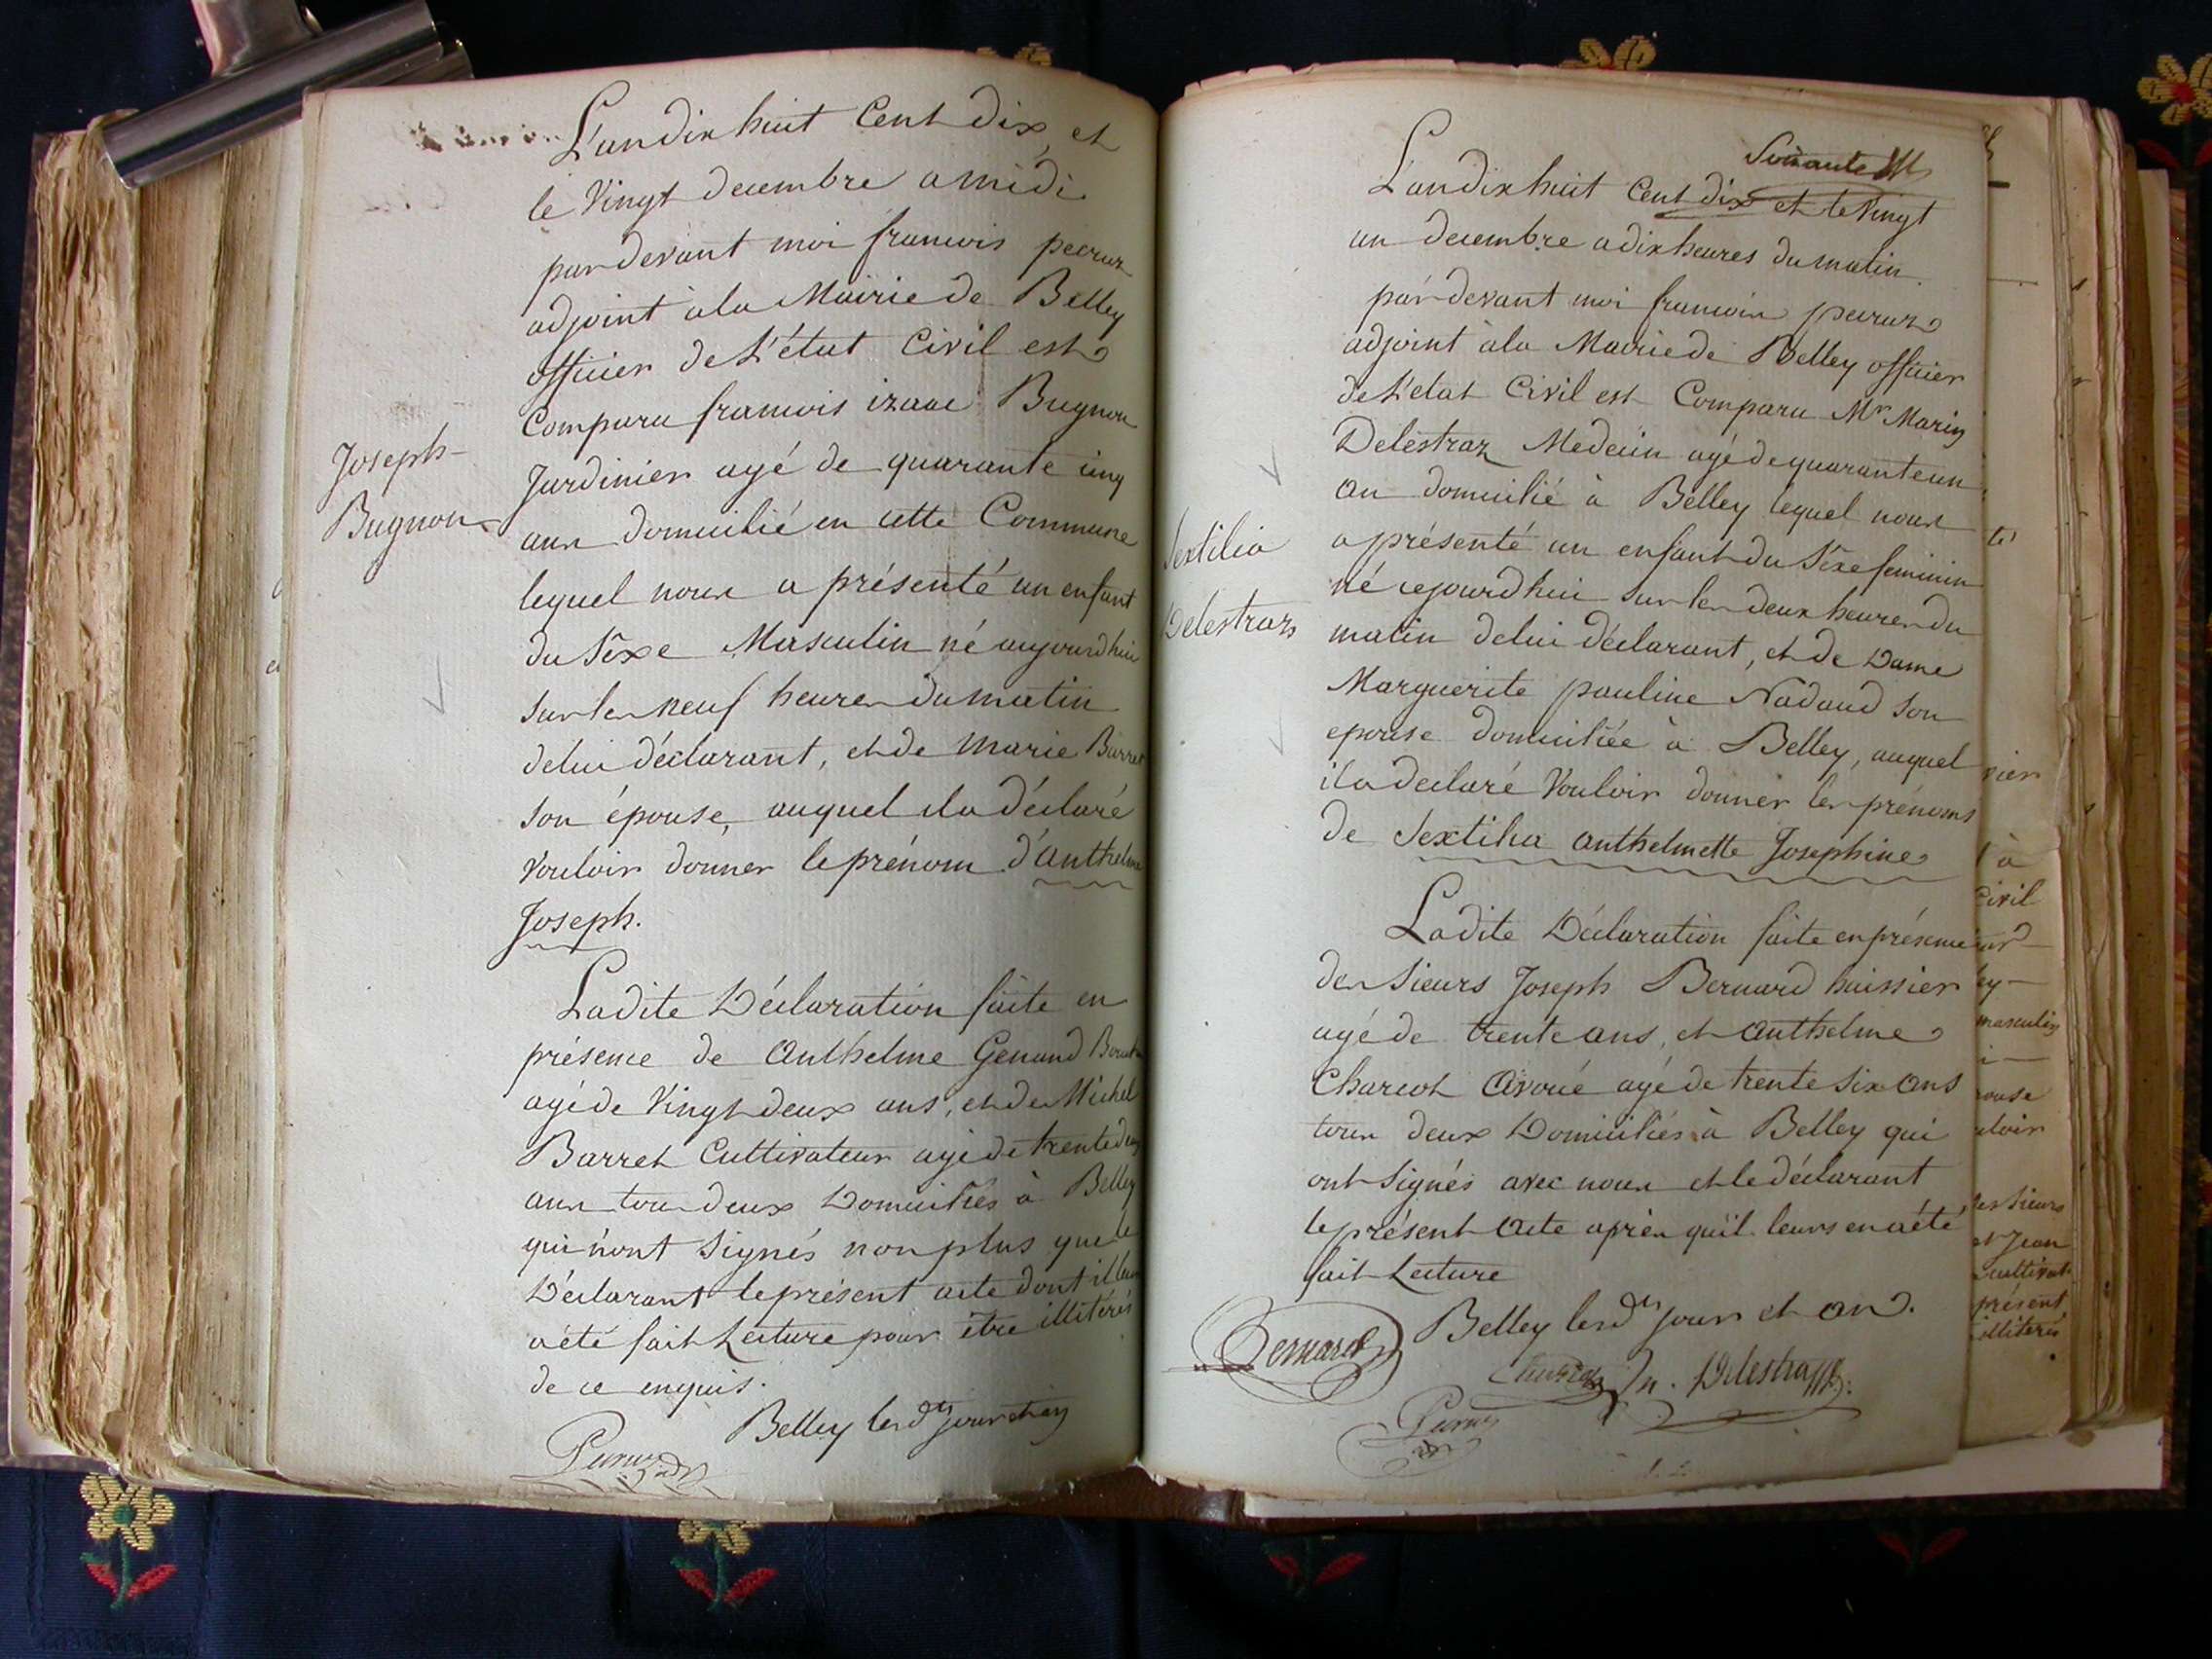 L'an dix huit Cent dix, et
le Vingt decembre a midi
pardevant moi francois peeruz
adjoint à la Mairie de Belley
officier de L'état Civil est
Comparu francois izaac Bugnon
Jardinier agé de quarante cinq
ans domicilié en cette Commune
lequel nous a présenté un enfant
du Séxe Masculin né aujourdhui
sur les neuf heures du matin
de lui déclarant, et de Marie Barret
son épouse, auquel il a déclaré
Vouloir donner le prénom d'anthelme
Joseph.
Joseph
Bugnon
Ladite Déclaration faite en
présence de Anthelme Genand
agé de Vingt deux ans, et de Michel
Barret Cultivateur agé de trente deux
ans tous deux Domiciliés à Belley
qui n'ont signés non plus que le
Déclarant le présent acte dont il leur
a été fait Lecture pour être illitérés
de ce enquis.
Belley les dts jour et an
Soixante
L'an dix huit Cent dix et le Vingt
un decembre a dix heures du matin
par devant moi francois peeruz
adjoint à la Mairie de Belley officier
de L'etat Civil est Comparu Mr Marin
Delestraz Medecin agé de quarante un
an domicilié à Belley lequel nous
a présenté un enfant du Séxe feminin
né cejourdhui sur les deux heures du
matin de lui déclarant, et de Dame
Marguerite pauline Nadaud son
epouse domiciliée à Belley, auquel
il a declaré Vouloir donner les prénoms
de Sextilia anthelmette Josephine
Sextilia
Delestraz
Ladite Déclaration faite en présence
des Sieurs Joseph Bernard huissier
agé de trente ans, et anthelme
Charcot Avoué agé de trente six ans
tous deux Domiciliés à Belley qui
ont signés avec nous et le déclarant
le présent acte après qu'il leurs en a été
fait Lecture
Belley les dts jour et an.
Bernard
Delestraz
vier
à
Civil
masculin
ouse
uloir
des sieurs
et Jean
présent
illiterés